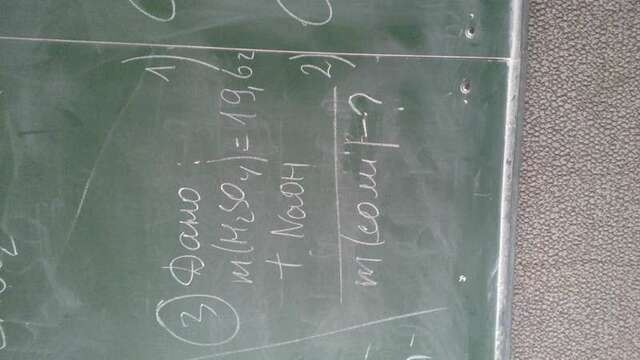 ③ Дано: 1)
m(H₂SO₄) = 19,6г
+ NaOH 2)
m(соли) - ?